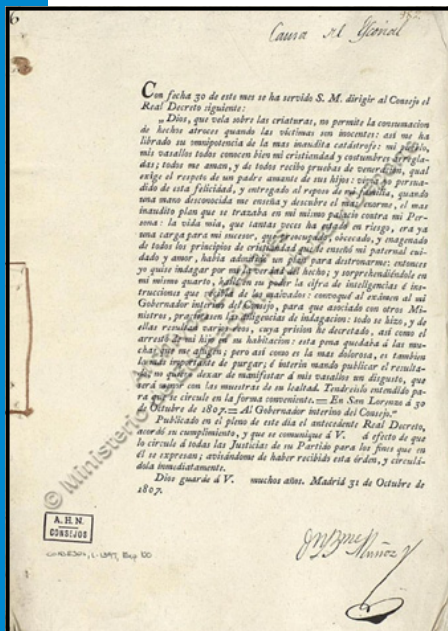 Causa del Escorial
Con fecha 30 de este mes se ha servido S. M. dirigir al Consejo el
Real Decreto siguiente:
„Dios, que vela sobre las criaturas, no permite la consumacion
de hechos atroces quando las víctimas son inocentes: así me ha
librado su omnipotencia de la mas inaudita catástrofe: mi pueblo,
mis vasallos todos conocen bien mi cristiandad y costumbres arregla-
das; todos me aman, y de todos recibo pruebas de veneracion, qual
exige el respeto de un padre amante de sus hijos: vivia yo persua-
dido de esta felicidad, y entregado al reposo de mi familia, quando
una mano desconocida me enseña y descubre el mas enorme, el mas
inaudito plan que se trazaba en mi mismo palacio contra mi Per-
sona: la vida mia, que tantas veces ha estado en riesgo, era ya
una carga para mi sucesor, que preocupado, obcecado, y enagenado
de todos los principios de cristiandad que le enseñó mi paternal cui-
dado y amor, habia admitido un plan para destronarme: entonces
yo quise indagar por mí la verdad del hecho; y sorprehendiéndole en
mi mismo quarto, hallé en su poder la cifra de inteligencias é ins-
trucciones que recibia de los malvados: convoqué al exámen al mi
Gobernador interino del Consejo, para que asociado con otros Mi-
nistros, practicasen las diligencias de indagacion: todo se hizo, y de
ellas resultan varios reos, cuya prision he decretado, así como el
arresto de mi hijo en su habitacion: esta pena quedaba á las mu-
chas que me afligen; pero así como es la mas dolorosa, es tambien
la mas importante de purgar; é ínterin mando publicar el resulta-
do, no quiero dexar de manifestar á mis vasallos un disgusto, que
será menor con las muestras de su lealtad. Tendréislo entendido pa-
ra que se circule en la forma conveniente. = En San Lorenzo á 30
de Octubre de 1807. = Al Gobernador interino del Consejo."
Publicado en el pleno de este dia el antecedente Real Decreto,
acordó su cumplimiento, y que se comunique á V. á efecto de que
lo circule á todas las Justicias de su Partido para los fines que en
él se expresan; avisándome de haber recibido esta órden, y circulán-
dola inmediatamente.
Dios guarde á V. muchos años. Madrid 31 de Octubre de
1807.
© Ministerio de
A. H. N.
CONSEJOS
CONSEJOS, L-
Muñoz